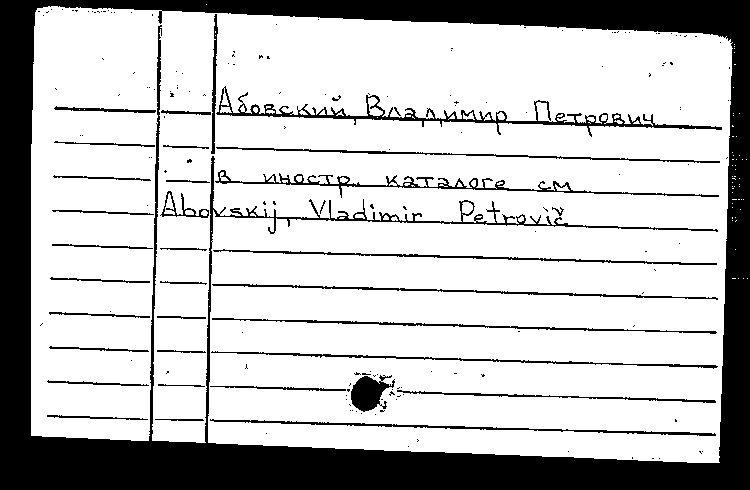 Абовский, Владимир Петрович
в иностр. каталоге см
Abovskij, Vladimir Petrovič